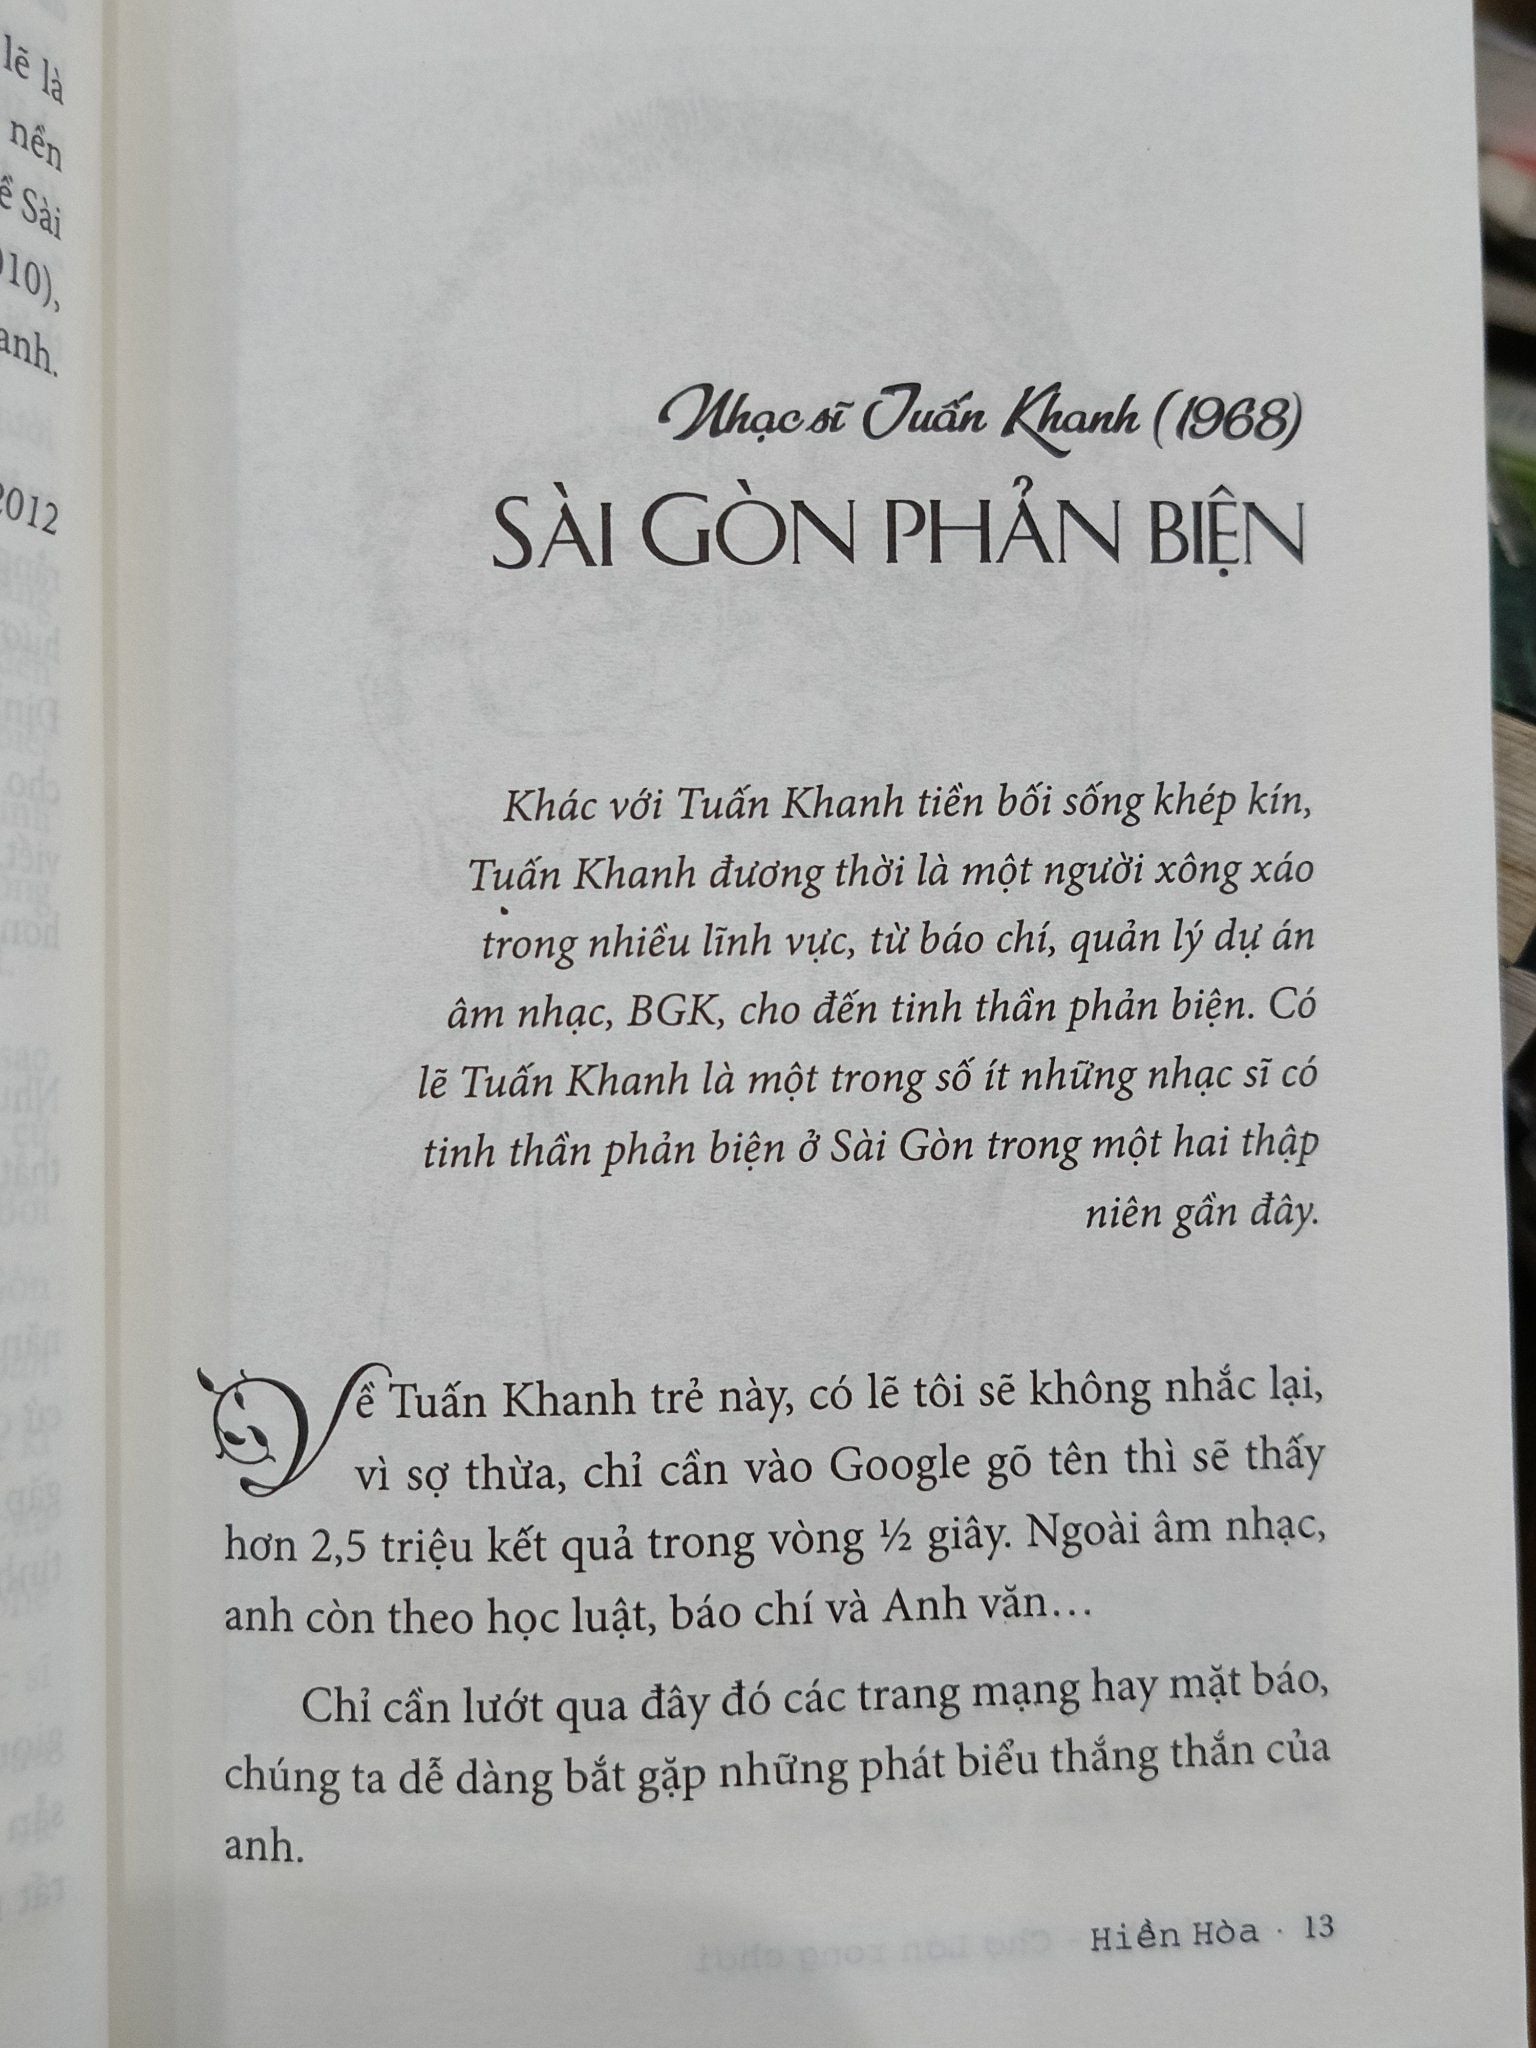 lẽ là
nền
Sài
anh.
2012
Nhạc sĩ Tuấn Khanh (1968)
SÀI GÒN PHẢN BIỆN
Khác với Tuấn Khanh tiền bối sống khép kín,
Tuấn Khanh đương thời là một người xông xáo
trong nhiều lĩnh vực, từ báo chí, quản lý dự án
âm nhạc, BGK, cho đến tinh thần phản biện. Có
lẽ Tuấn Khanh là một trong số ít những nhạc sĩ có
tinh thần phản biện ở Sài Gòn trong một hai thập
niên gần đây.
Về Tuấn Khanh trẻ này, có lẽ tôi sẽ không nhắc lại,
vì sợ thừa, chỉ cần vào Google gõ tên thì sẽ thấy
hơn 2,5 triệu kết quả trong vòng ½ giây. Ngoài âm nhạc,
anh còn theo học luật, báo chí và Anh văn…
Chỉ cần lướt qua đây đó các trang mạng hay mặt báo,
chúng ta dễ dàng bắt gặp những phát biểu thẳng thắn của
anh.
Hiền Hòa · 13